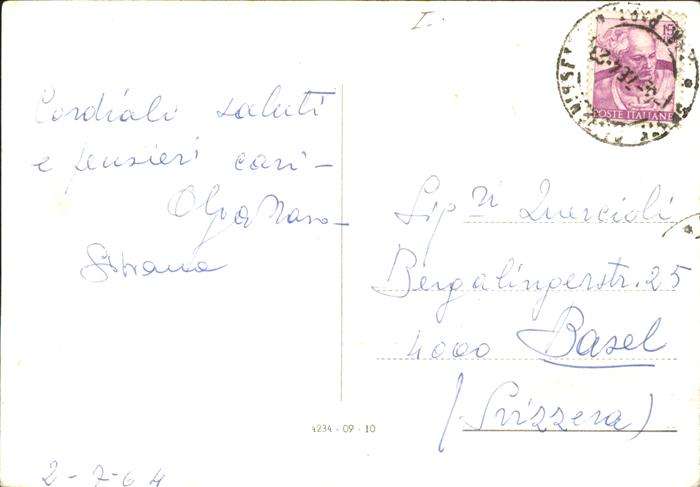 I.
POSTE ITALIANE
Cordiali saluti
e pensieri cari -
Olga
Sig.ri Quercioli
Bergalingerstr. 25
4000 Basel
(Svizzera)
4234 - 09 - 10
2-7-64